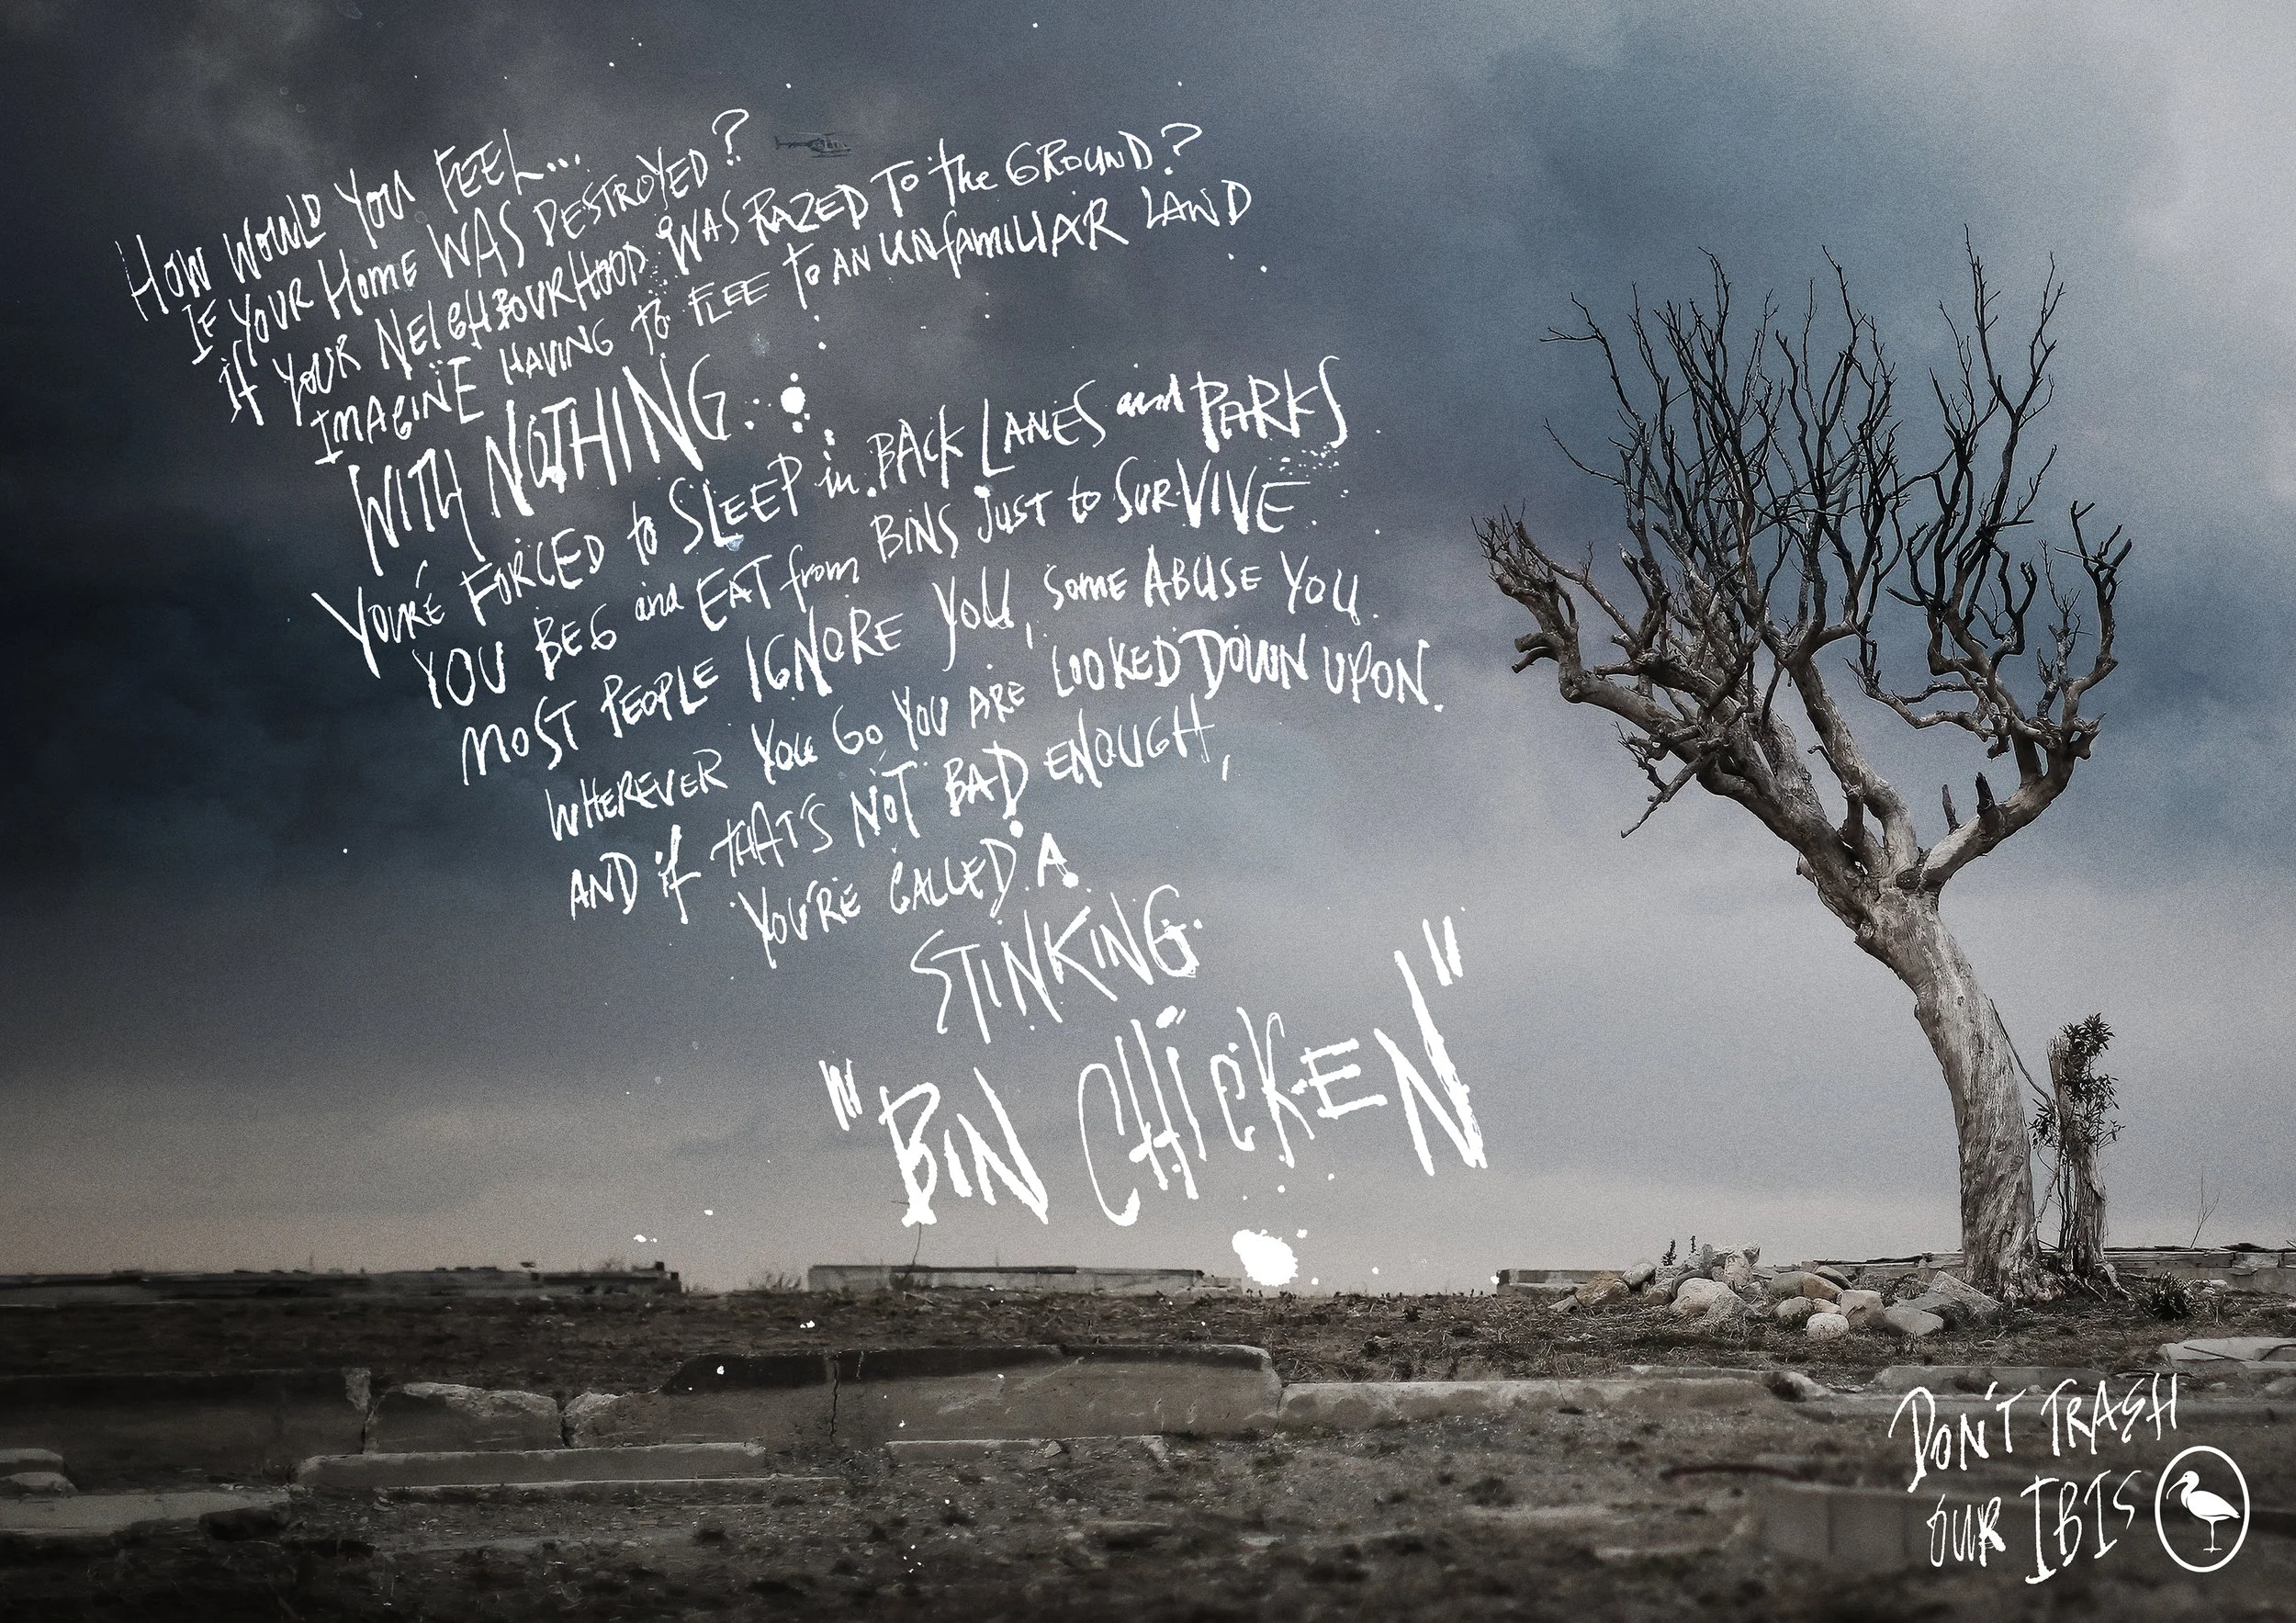 How would you feel...
If your home was destroyed?
If your neighbourhood was razed to the ground?
Imagine having to flee to an unfamiliar land
with nothing.
You're forced to sleep in back lanes and parks
You beg and eat from bins just to survive.
Most people ignore you, some abuse you.
Wherever you go you are looked down upon.
And if that's not bad enough,
you're called a
stinking
"Bin Chicken"
Don't trash
our Ibis